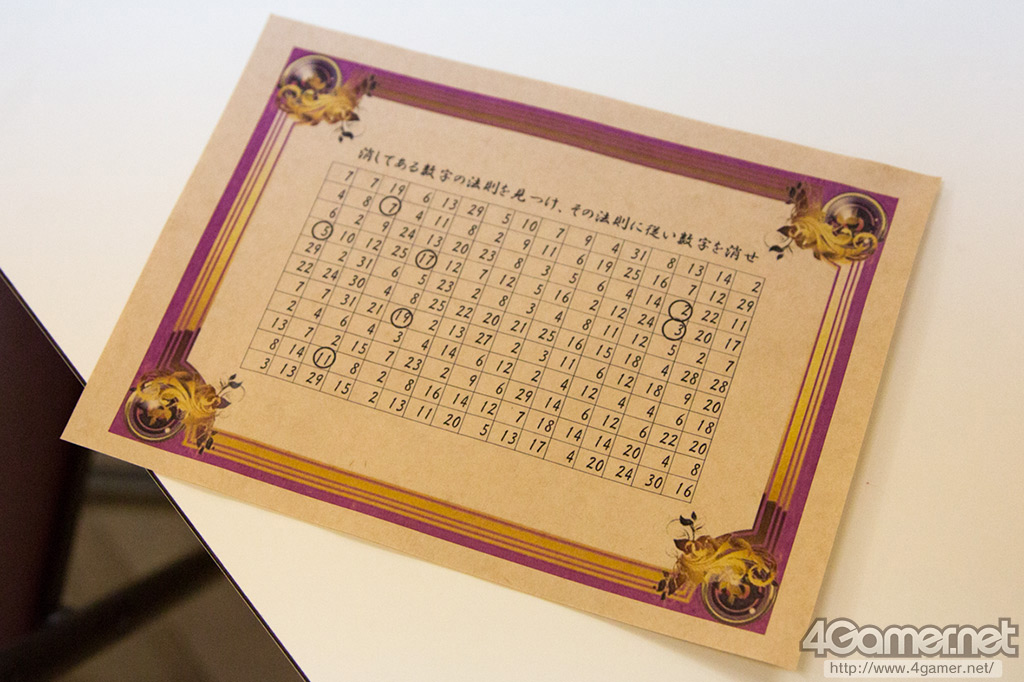 消してある数字の法則を見つけ、その法則に従い数字を消せ
7 7 19 6 13 29 5 10 7 9 4 31 8 13 14 2
4 8 7 4 11 8 2 9 11 6 19 25 16 7 12 29
6 2 9 24 13 20 23 8 3 5 6 4 14 2 22 11
5 10 12 25 17 12 7 12 5 16 2 12 24 3 20 17
29 2 31 6 5 23 2 8 3 4 8 11 12 5 2 7
22 24 30 4 8 25 22 20 21 25 16 15 18 4 28 28
7 7 31 21 19 2 13 27 2 3 11 6 12 18 9 20
2 4 6 4 3 4 14 6 12 2 4 12 4 4 6 18
13 7 2 15 7 23 2 9 6 29 14 6 12 6 22 20
8 14 11 8 2 8 16 14 12 7 18 14 14 20 4 8
3 13 29 15 2 13 11 20 5 13 17 4 20 24 30 16
4Gamer.net
http://www.4gamer.net/